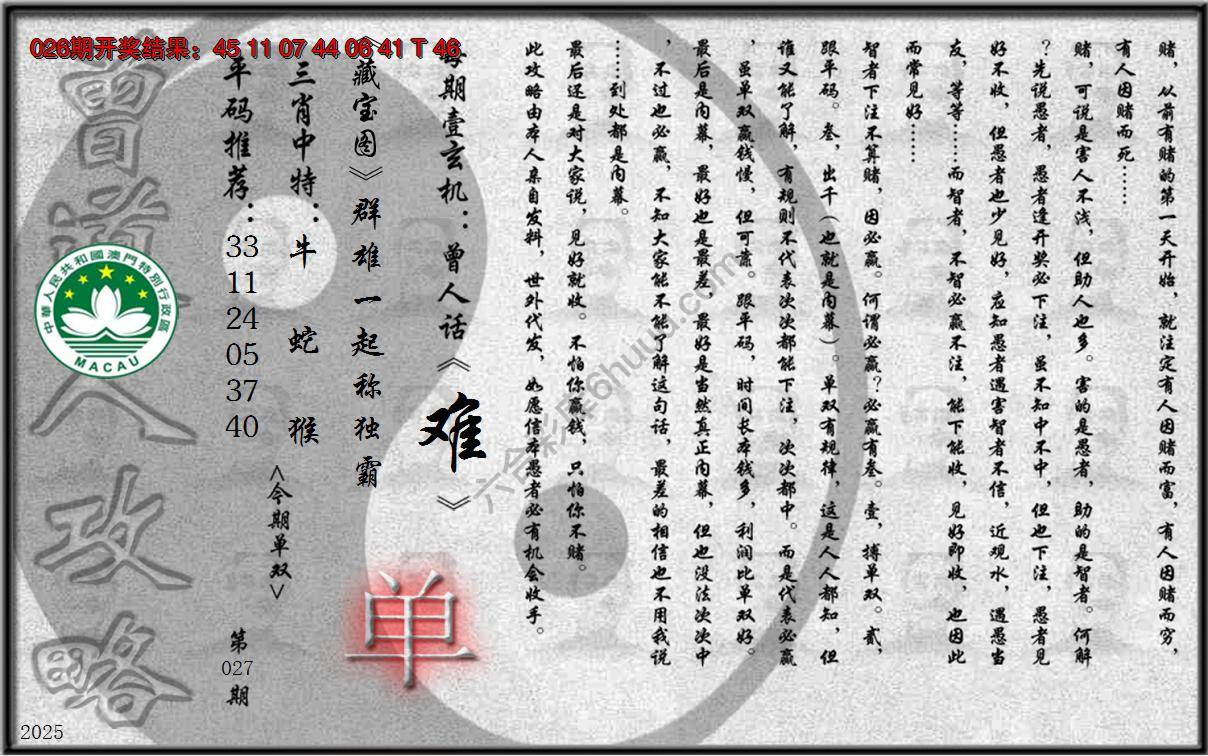 026期开奖结果：45 11 07 44 06 41 T 46
赌，从前有赌的第一天开始，就注定有人因赌而富，有人因赌而穷，
有人因赌而死……
赌，可说是害人不浅，但助人也多。害的是愚者，助的是智者。何解
？先说愚者，愚者逢开奖必下注，虽不知中不中，但也下注，愚者见
好不收，但愚者也少见好，应知愚者遇害智者不信，近观水，遇愚当
友，等等……而智者，不智必赢不注，能下能收，见好即收，也因此
而常见好……
智者下注不算赌，因必赢。何谓必赢？必赢有叁。壹，搏单双。贰，
跟平码。叁，出千（也就是内幕）。单双有规律，这是人人都知，但
谁又能了解，有规则不代表次次都能下注，次次都中。而是代表必赢
，虽单双赢钱慢，但可靠。跟平码，时间长本钱多，利润比单双好。
最后是内幕，最好也是最差，最好是当然真正内幕，但也没法次次中
，不过也必赢，不知大家能不能了解这句话，最差的相信也不用我说
……到处都是内幕。
最后还是对大家说，见好就收。不怕你赢钱，只怕你不赌。
此攻略由本人亲自发料，世外代发，如愿信本愚者必有机会收手。
每期壹玄机：曾人话《难》
《藏宝图》群雄一起称独霸
三肖中特：牛 蛇 猴
平码推荐：33 11 24 05 37 40
<今期单双>
单
第027期
曾道人攻略
中華人民共和國澳門特別行政區
MACAU
六合彩库6huuu.com
2025